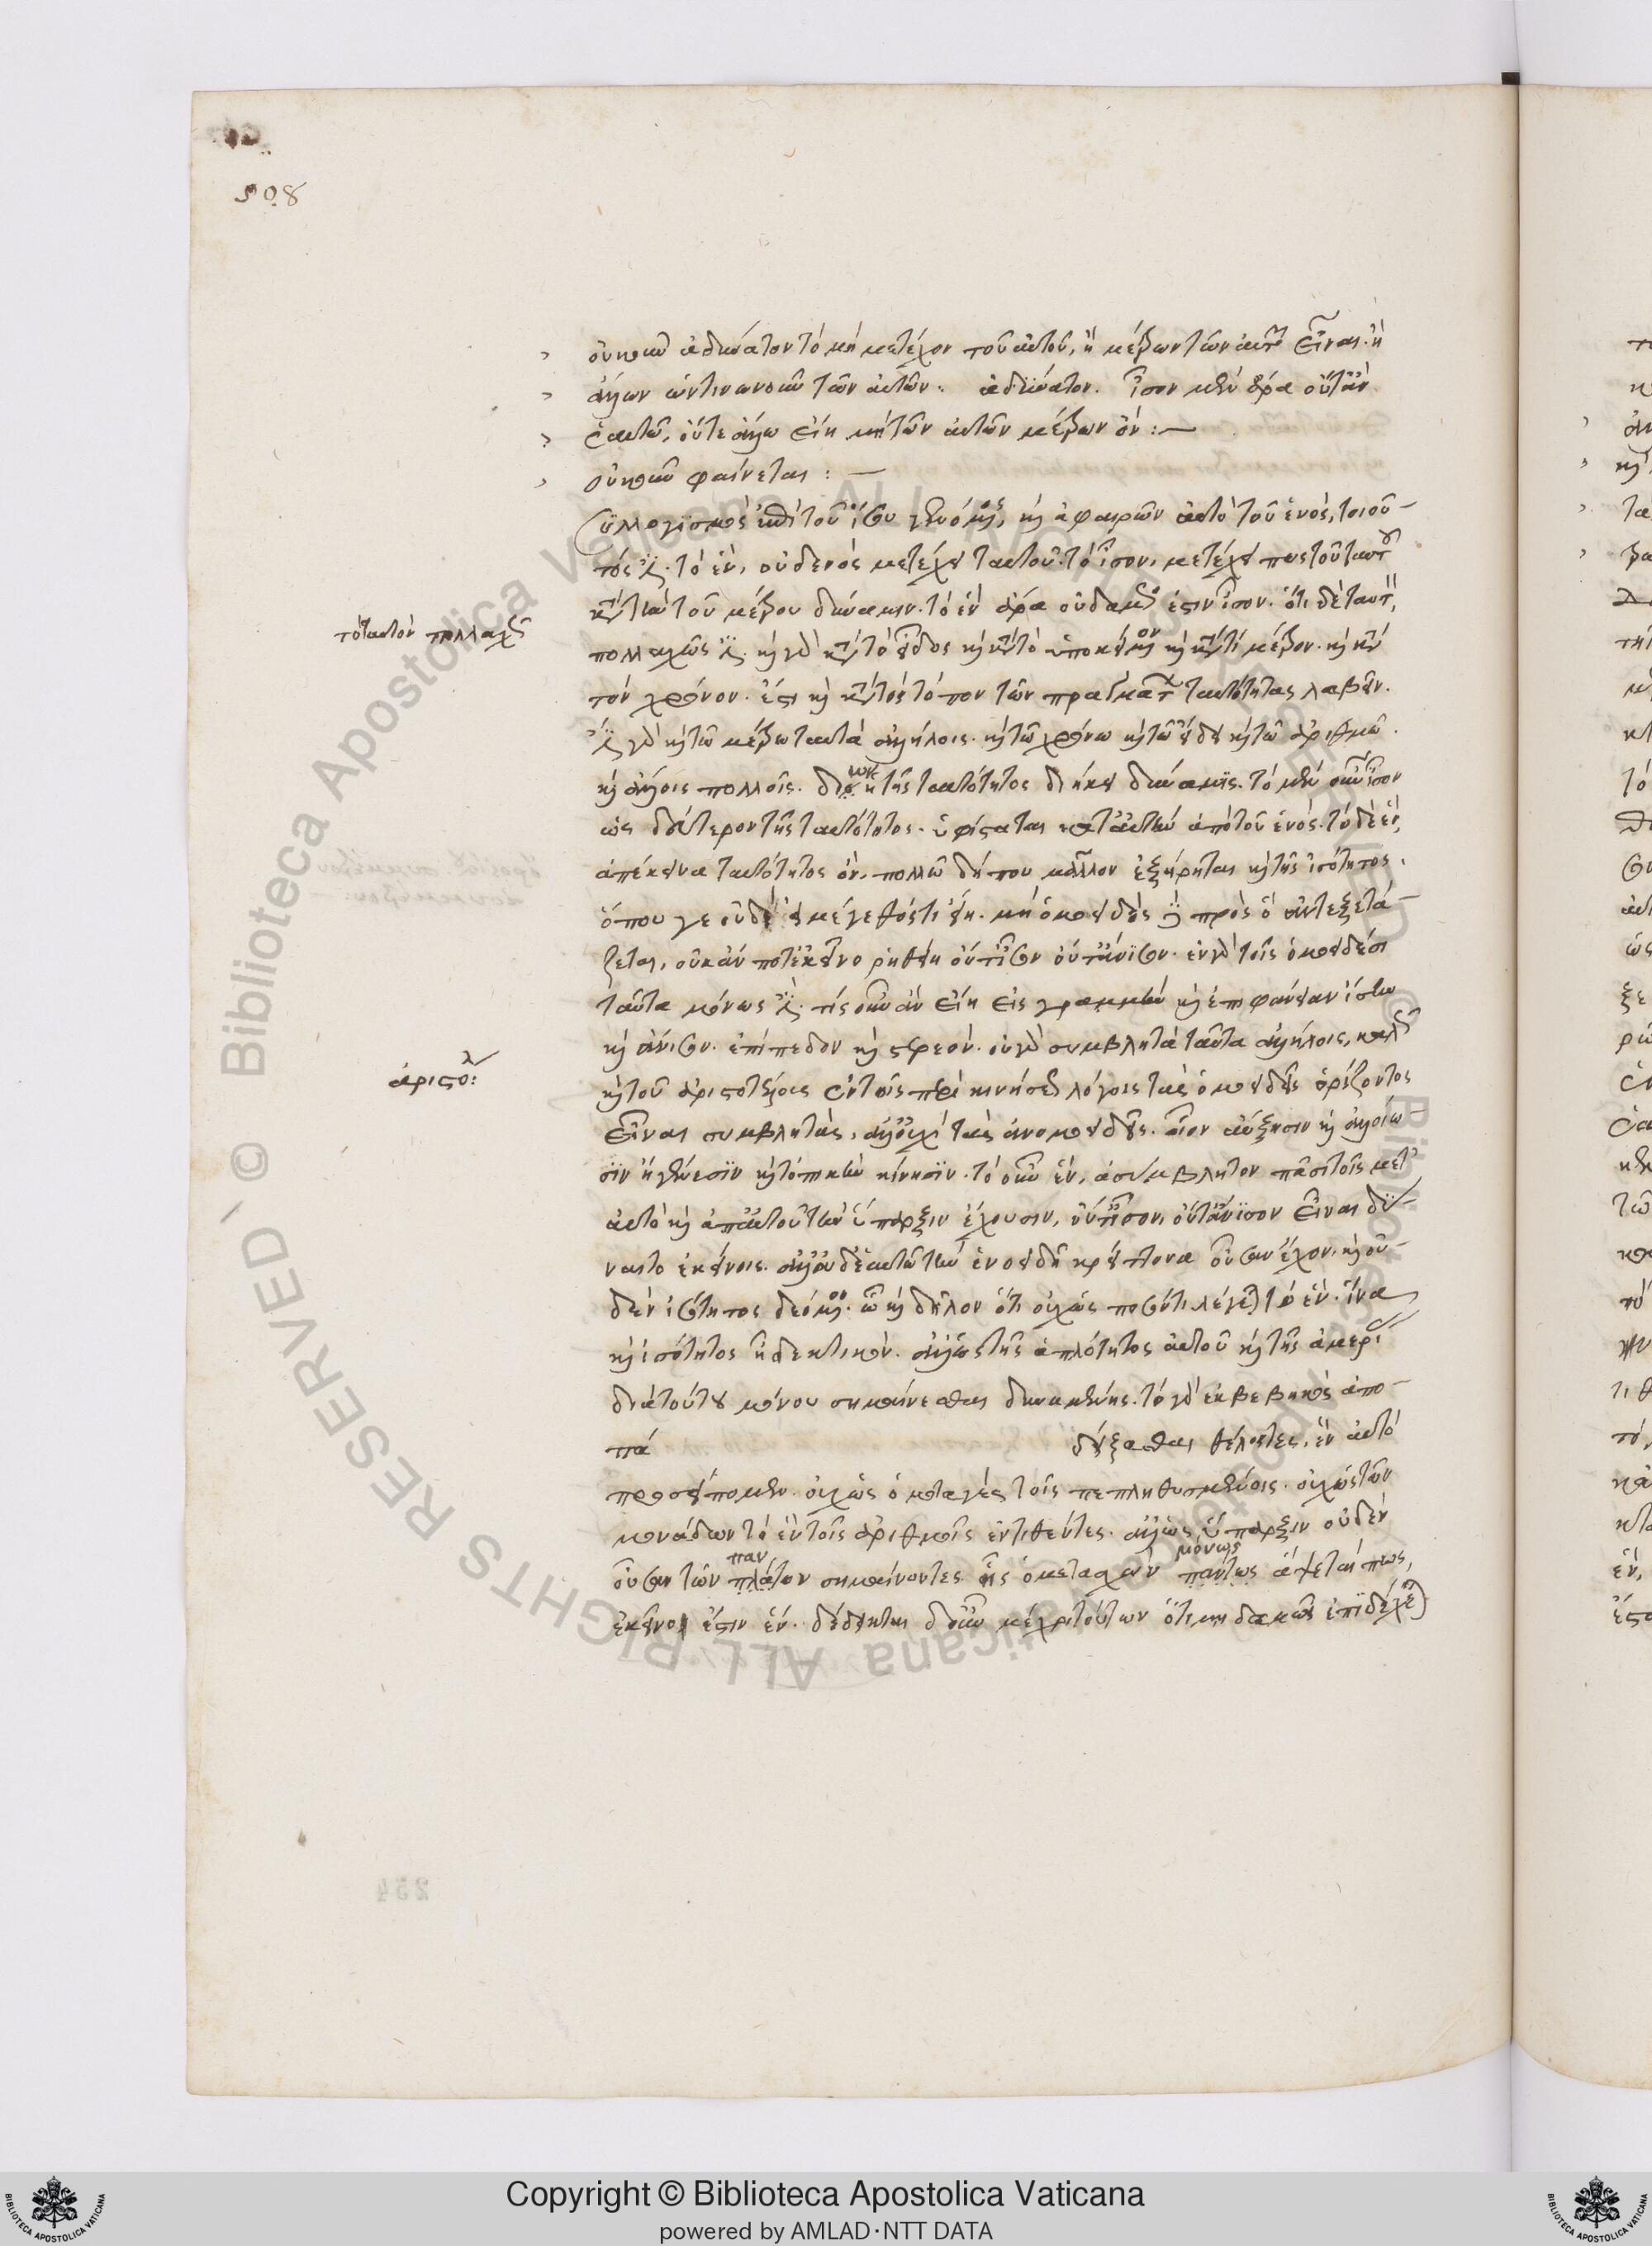 508
οὐκοῦν ἀδύνατον τὸ μὴ μετέχον τοῦ αὐτοῦ, ἢ μέρων τῶν αὐτῶν εἶναι ἢ
ἄλλων ὡντινωνοῦν τῶν αὐτῶν. ἀδύνατον. ἴσον μὲν ἄρα οὔτ' ἂν
ἑαυτῷ, οὔτε ἄλλῳ εἴη μὴ τῶν αὐτῶν μέτρων ὄν:—
οὔκουν φαίνεται:—
Συλλογισμὸς ἐπὶ τοῦ ἴσου γενόμενος, καὶ ἀφαιρῶν αὐτὸ τοῦ ἑνός, τοιοῦ-
τός ἐστι. τὸ ἕν, οὐδενὸς μετέχει ταυτοῦ. τὸ ἴσον, μετέχει πως τοῦ ταυτοῦ
κατὰ τὴν τοῦ μέτρου δύναμιν. τὸ ἓν ἄρα οὐδαμῶς ἐστιν ἴσον. ὅτι δὲ ταυτ,
τὸ ταυτὸν πολλαχῶς
πολλαχῶς ἐστι. καὶ γὰρ κατὰ τὸ εἶδος καὶ κατὰ τὸ ὑποκείμενον καὶ κατά τι μέτρον. καὶ κατὰ
τὸν χρόνον. ἔστι καὶ κατὰ τὸν τόπον τῶν πραγμάτων ταυτότητας λαβεῖν.
ἔστι γὰρ καὶ τῷ μέτρῳ ταυτὰ ἀλλήλοις. καὶ τῷ χρόνῳ καὶ τῷ εἴδει καὶ τῷ ἀριθμῷ.
καὶ ἄλλοις πολλοῖς. ἡ τῆς ταυτότητος διήκει δύναμις. τὸ μὲν οὖν ἴσον
ὡς δεύτερον τῆς ταυτότητος. ὑφίσταται κατ' αὐτὴν ἀπὸ τοῦ ἑνός. τὸ δὲ ἕν,
ἀπέκεινα ταυτότητος ὄν, πολλῷ δήπου μᾶλλον ἐξῄρηται καὶ τῆς ἰσότητος.
ὅπου γε οὐδ' εἰ μέγεθός τι εἴη. μὴ ὁμοειδὲς πρὸς ὃ ἀντεξετά-
ζεται, οὐκ ἄν ποτ' ἐκεῖνο ῥηθείη οὔτ' ἴσον οὔτ' ἄνισον. ἐν γὰρ τοῖς ὁμοειδέσι
ταῦτα μόνως ἐστί. τίς οὖν ἂν εἴη εἰς γραμμὴν καὶ ἐπιφάνειαν ἴσην
καὶ ἄνισον. ἐπίπεδον καὶ στερεόν. οὐ γὰρ συμβλητὰ ταῦτα ἀλλήλοις, καθὼς
ἀριστο:
καὶ τοῦ ἀριστοτέλους ἐν τοῖς περὶ κινήσεως λόγοις τὰς ὁμοειδεῖς ὁρίζοντος
εἶναι συμβλητάς, ἀλλ' οὐχὶ τὰς ἀνομοειδεῖς. οἷον αὔξησιν καὶ ἀλλοίω-
σιν ἢ γένεσιν καὶ τοπικὴν κίνησιν. τὸ οὖν ἕν, ἀσύμβλητον πᾶσι τοῖς μετ'
αὐτὸ καὶ ἀπ' αὐτοῦ τὴν ὕπαρξιν ἔχουσιν, οὔτ' ἴσον, οὔτ' ἄνισον εἶναι δύ-
ναιτο ἐκείνοις. ἀλλ' οὐδ' ἑαυτῷ τὴν ἑνοειδῆ κρείττονα οὖσαν ἔχον. καὶ οὐ-
δὲν ἰσότητος δεόμενον. ᾧ καὶ δῆλον ὅτι οὐχ ὡς ποσόν τι λέγεται τὸ ἕν. ἵνα
καὶ ἰσότητος ᾖ δεκτικόν. ἀλλ' ὡς τῆς ἁπλότητος αὐτοῦ καὶ τῆς ἀμερ
διὰ τούτου μόνου σημαίνεσθαι δυναμένης. τὸ γὰρ ἐκβεβηκὸς ἀπο-
πά δείξασθαι θέλοντες, ἓν αὐτὸ
προσείπομεν. οὐχ ὡς ὁμοταγὲς τοῖς πεπληθυσμένοις. οὐχ ὡς τῶν
μονάδων τὸ ἓν τοῖς ἀριθμοῖς ἐντιθέντες. ἀλλ' ὡς ὕπαρξιν οὐδὲν
παν μόνως
οὖσαν τῶν πλάτων σημαίνοντες ἧς ὁ μετασχὼν πάντως ἅψεταί πως,
ἐκεῖνο ἐστιν ἕν. δέδεικται δ' οὖν μέχρι τούτων ὅτι μηδαμῶς ἐπιδέχεται
254